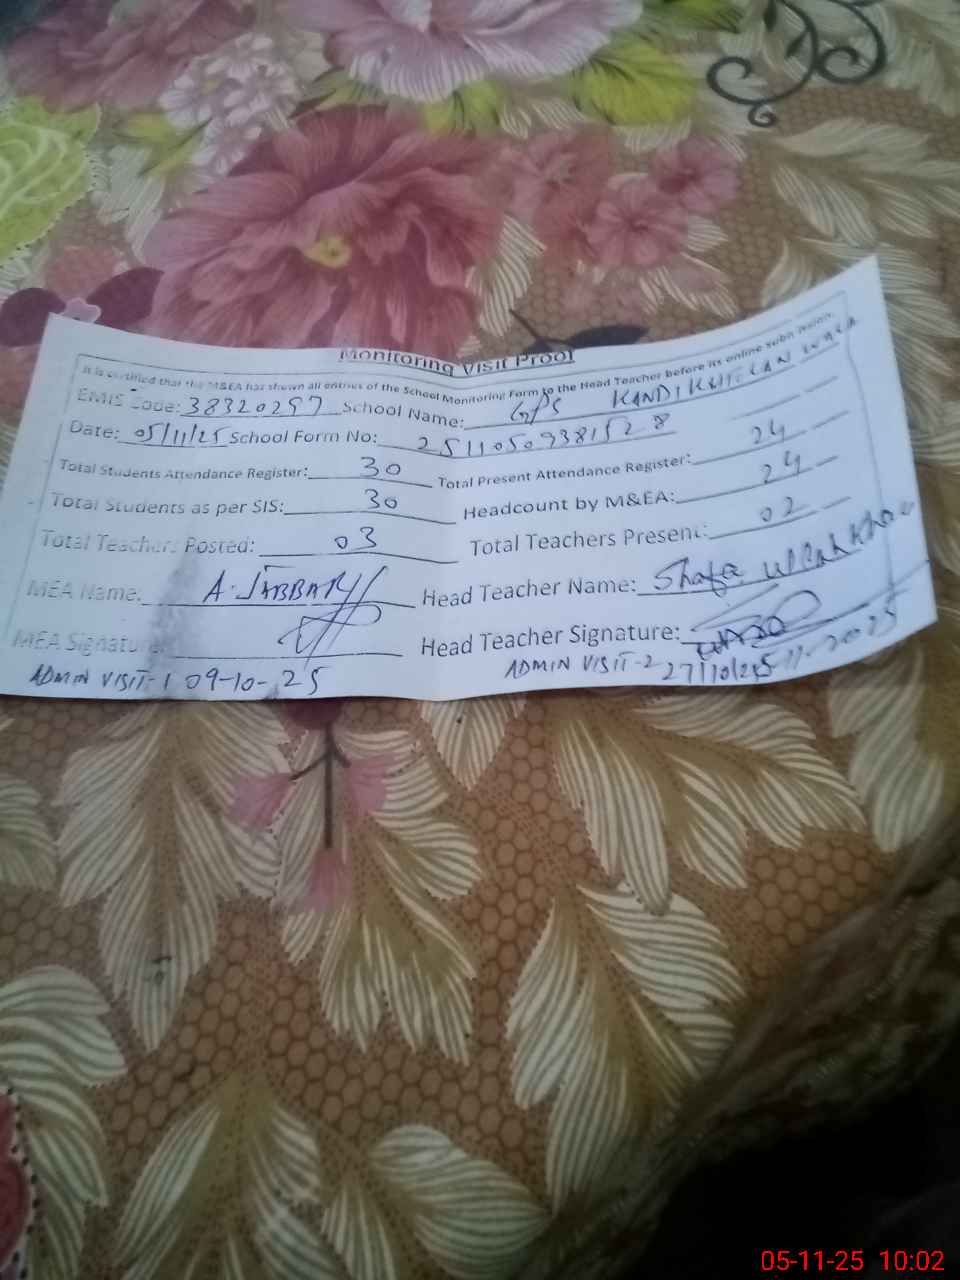 Monitoring Visit Proof
It is certified that the M&EA has shown all entries of the School Monitoring Form to the Head Teacher before its online submission.
EMIS Code: 38320297 School Name: GPS KANDI KHICHAN WALA
Date: 05/11/25 School Form No: 25110509381528
Total Students Attendance Register: 30 Total Present Attendance Register: 24
Total Students as per SIS: 30 Headcount by M&EA: 24
Total Teachers Posted: 03 Total Teachers Present: 02
MEA Name: A. JABBAR Head Teacher Name: Shafa Ullah Khan
MEA Signature: Head Teacher Signature:
ADMIN VISIT-1 09-10-25 ADMIN VISIT-2 27/10/25 -11-2025
05-11-25 10:02